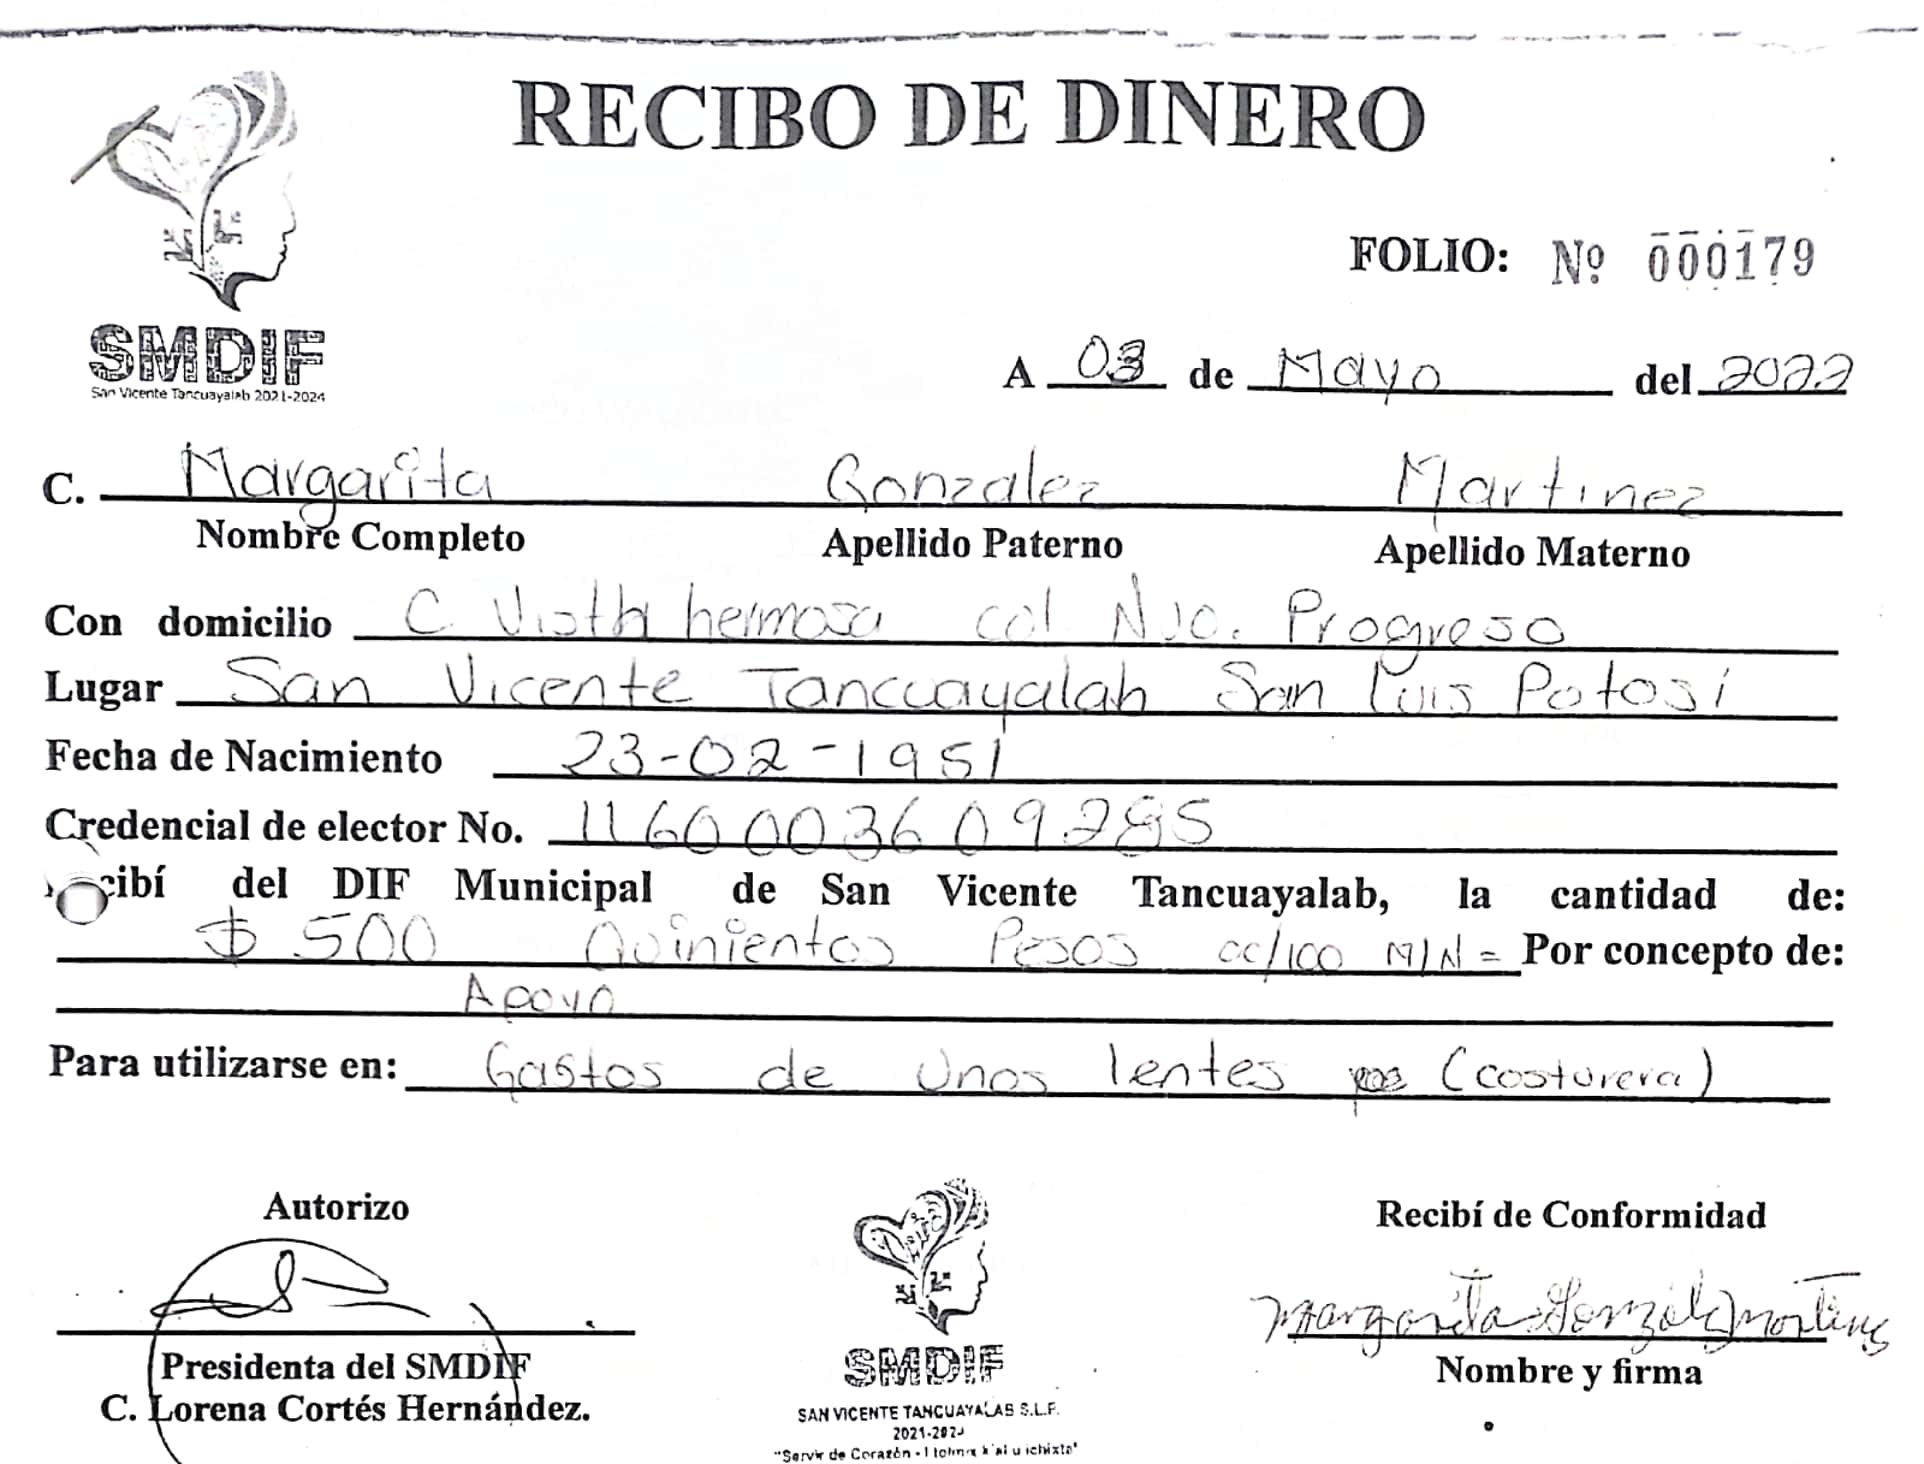 RECIBO DE DINERO
FOLIO: Nº 000179
SMDIF
San Vicente Tancuayalab 2021-2024
A 03 de Mayo del 2022
C. Margarita Gonzalez Martinez
Nombre Completo Apellido Paterno Apellido Materno
Con domicilio C. Vista hermosa col Nvo. Progreso
Lugar San Vicente Tancuayalab San Luis Potosi
Fecha de Nacimiento 23-02-1951
Credencial de elector No. 1160003609285
cibí del DIF Municipal de San Vicente Tancuayalab, la cantidad de:
$ 500 Quinientos Pesos 00/100 M/N = Por concepto de:
Apoyo
Para utilizarse en: Gastos de unos lentes (costurera)
Autorizo
Recibí de Conformidad
Margarita Gonzalez Martinez
Presidenta del SMDIF
C. Lorena Cortés Hernández.
Nombre y firma
SMDIF
SAN VICENTE TANCUAYALAB S.L.P.
2021-202
"Servir de Corazón -